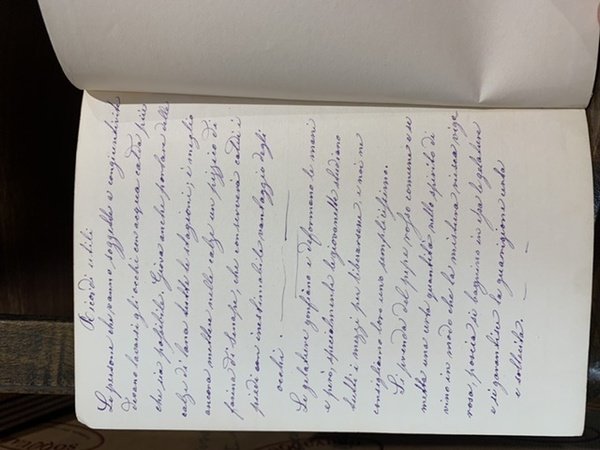 Ricordi utili
Le persone che vanno soggette a congiuntivite
devono lavarsi gli occhi con acqua calda più
che sia possibile. Giova anche portare delle
calze di lana tutte le stagioni, e meglio
ancora mettere nelle calze un pizzico di
farina di senape, che conservava caldi i
piedi con inestimabile vantaggio degli
occhi.
Se gelature gonfiano e deformano le mani
e piedi, specialmente le giovanette studiano
tutti i mezzi per liberarsene, e noi ne
consigliamo loro uno semplicissimo.
Si prenda del pepe rosso comune e se
metta una certa quantità nello spirito di
vino in modo che la mistura riesca vige
rosa, poscia si bagnino in essa le gelature
e si guarentisce la guarigione certa
e sollecita.